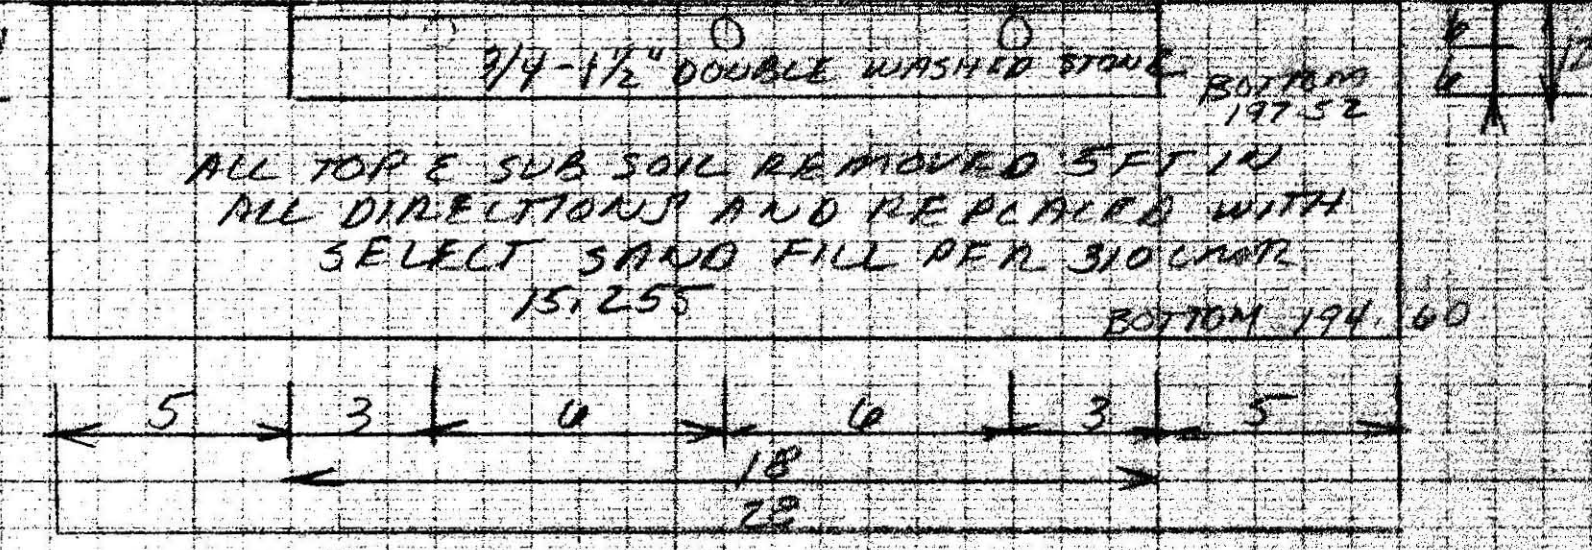 3/4-1 1/2" DOUBLE WASHED STONE
BOTTOM
197.52
6
6
12
ALL TOP & SUB SOIL REMOVED 5 FT IN
ALL DIRECTIONS AND REPLACED WITH
SELECT SAND FILL PER 310 CMR
15.255
BOTTOM 194.60
5 3 6 6 3 5
18
28